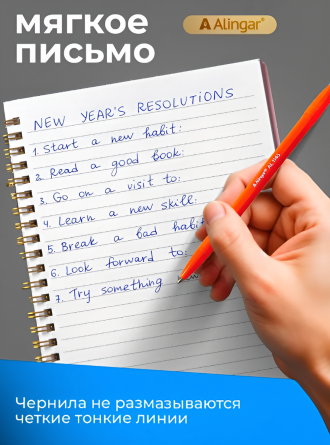 мягкое
письмо
Alingar®
NEW YEAR'S RESOLUTIONS
1. Start a new habit:
2. Read a good book:
3. Go on a visit to:
4. Learn a new skill:
5. Break a bad habit
6. Look forward to:
7. Try something
Alingar®
Чернила не размазываются
четкие тонкие линии